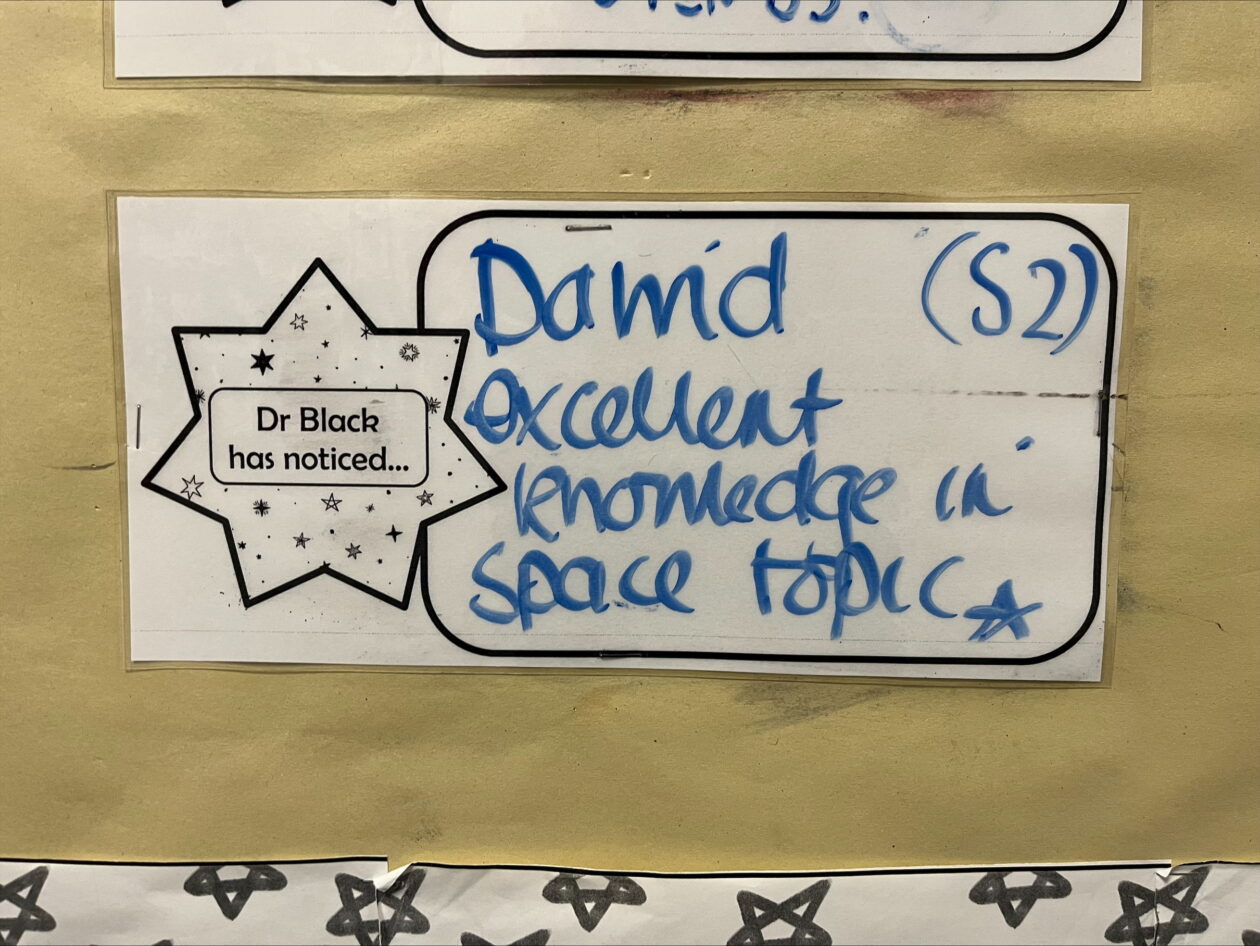 Dawid (S2)
excellent
Dr Black
has noticed...
knowledge in
space topic